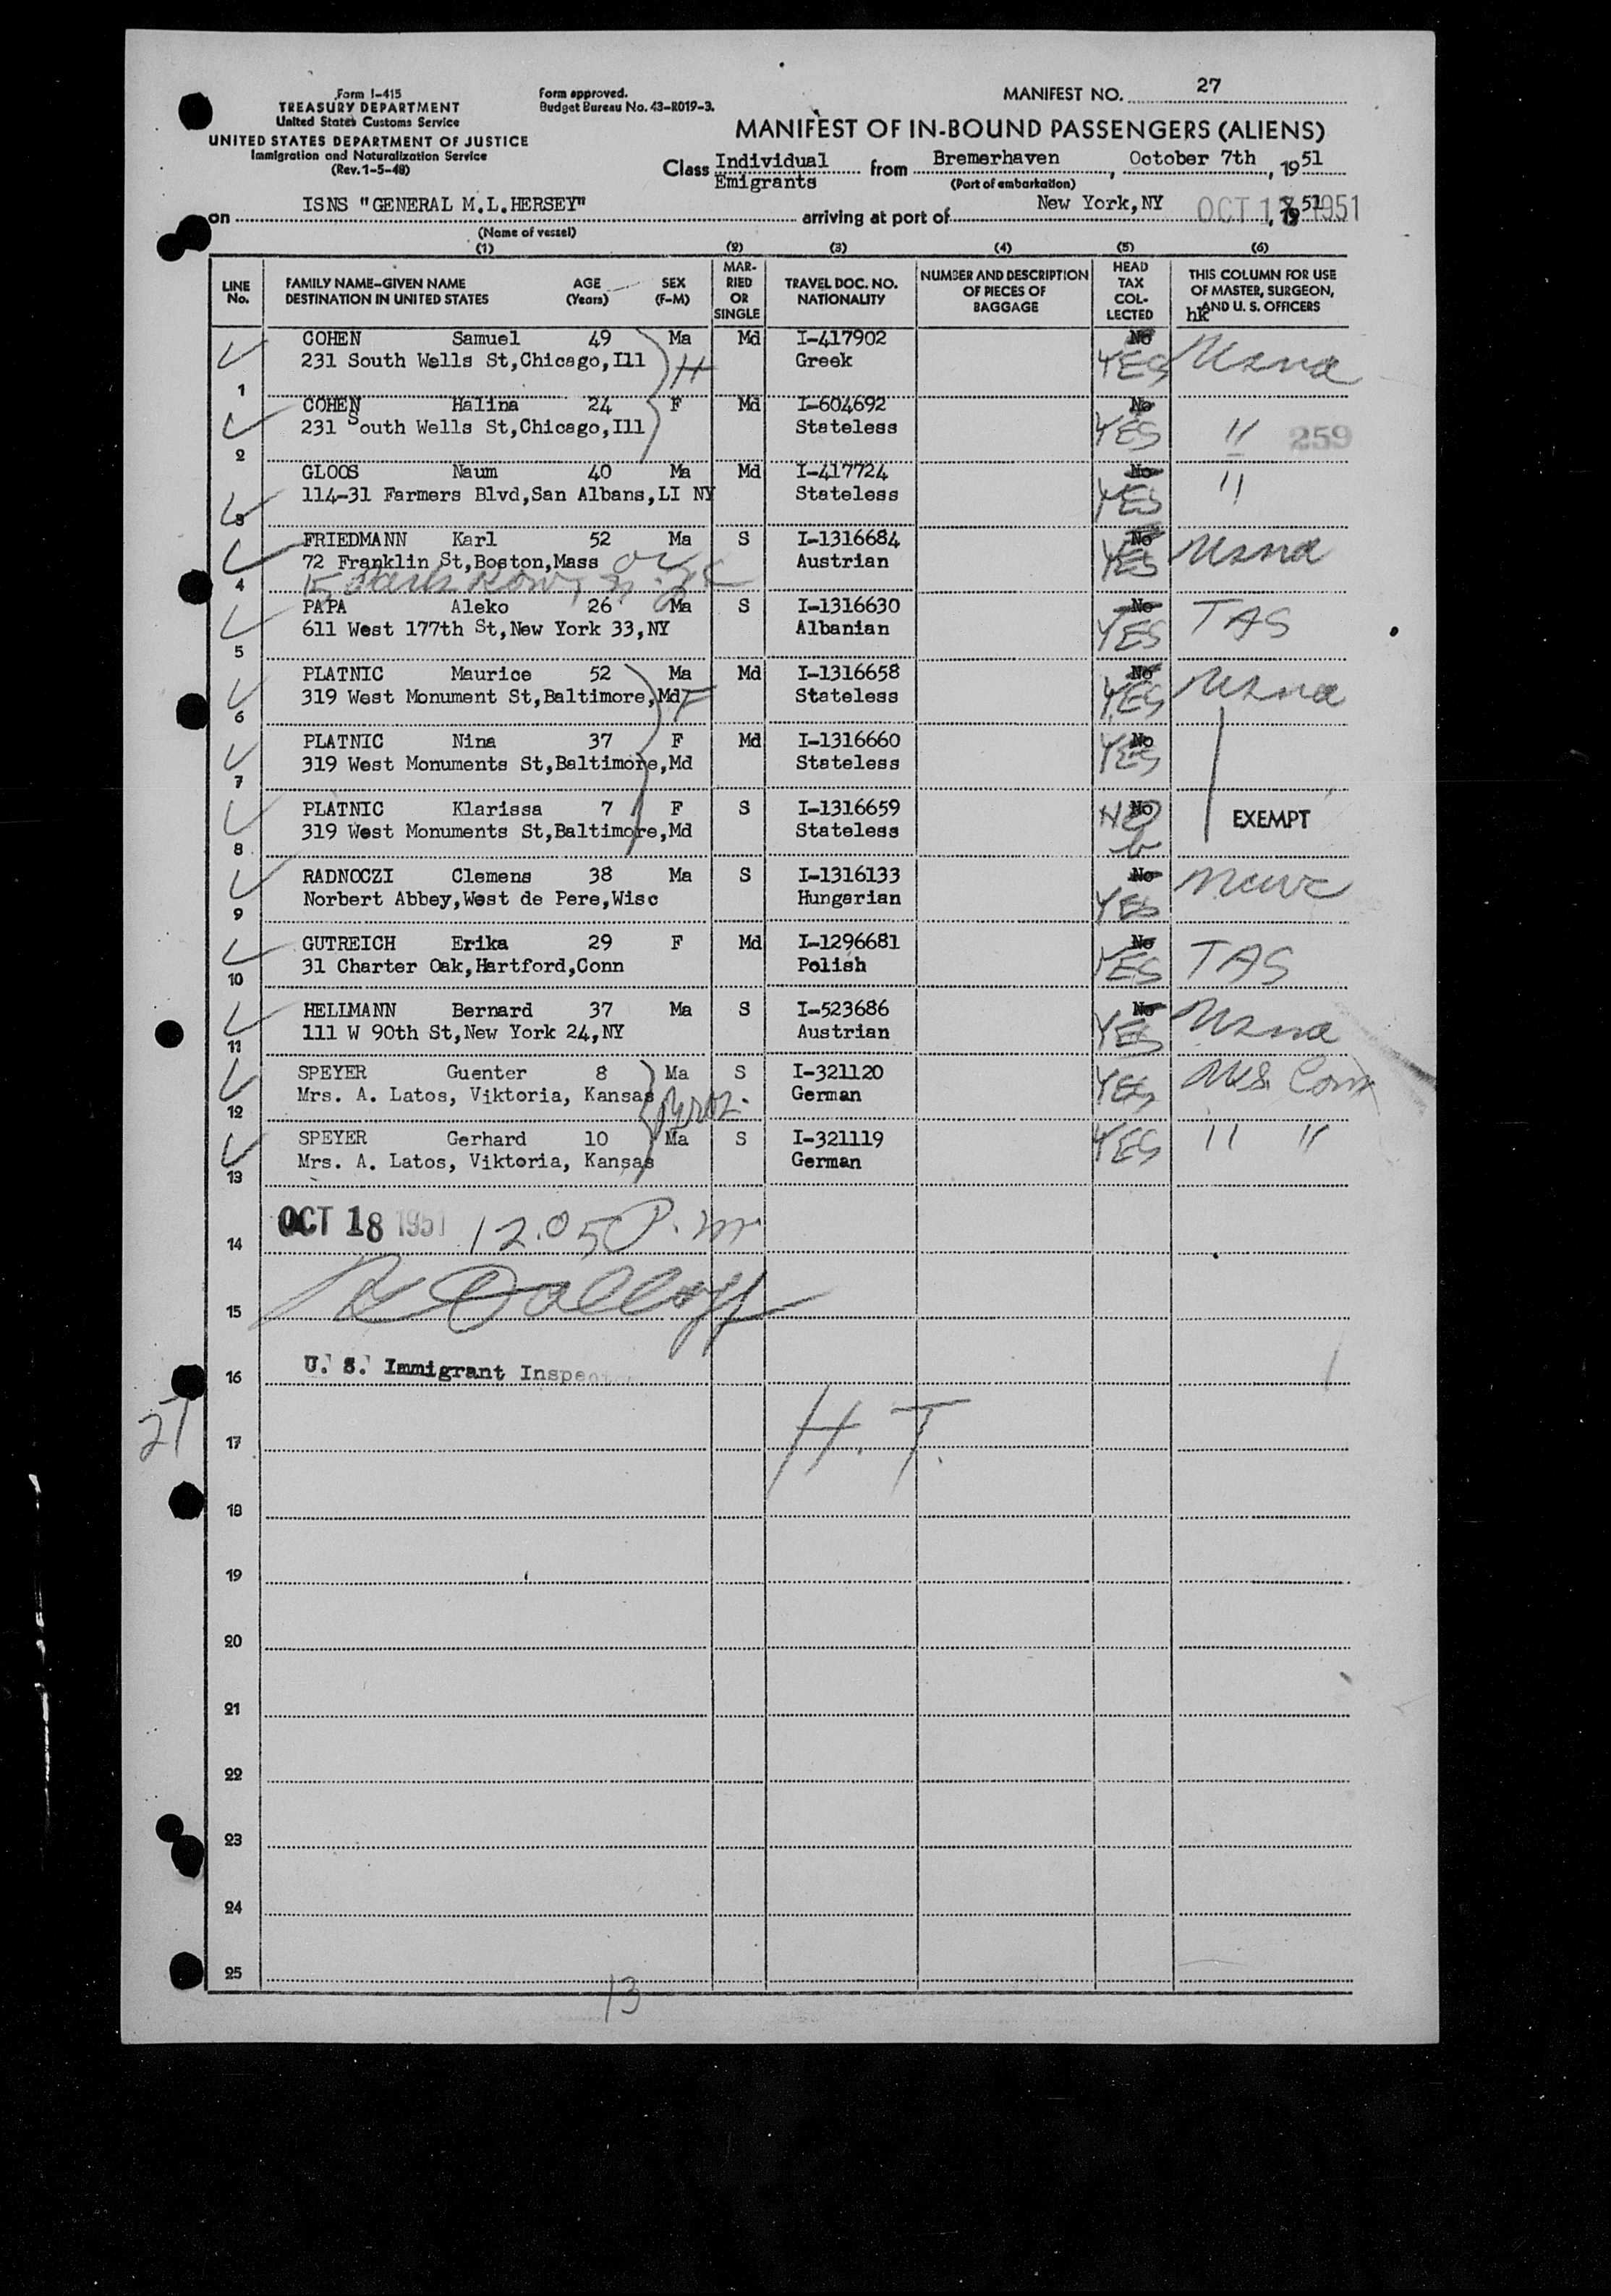 Form I-415
TREASURY DEPARTMENT
United States Customs Service
UNITED STATES DEPARTMENT OF JUSTICE
Immigration and Naturalization Service
(Rev. 1-5-48)
Form approved.
Budget Bureau No. 43-R019-3.
MANIFEST NO. 27
MANIFEST OF IN-BOUND PASSENGERS (ALIENS)
Class Individual Emigrants from Bremerhaven, October 7th, 1951
(Port of embarkation)
on ISNS "GENERAL M.L.HERSEY" arriving at port of New York,NY OCT 1 1951, 1951
(Name of vessel)
(1) (2) (3) (4) (5) (6)
LINE No. FAMILY NAME-GIVEN NAME DESTINATION IN UNITED STATES AGE (Years) SEX (F-M) MARRIED OR SINGLE TRAVEL DOC. NO. NATIONALITY NUMBER AND DESCRIPTION OF PIECES OF BAGGAGE HEAD TAX COLLECTED THIS COLUMN FOR USE OF MASTER, SURGEON, AND U. S. OFFICERS
hk
COHEN Samuel 49 Ma Md I-417902 No
231 South Wells St,Chicago,Ill H Greek YES Usna
1
COHEN Halina 24 F Md I-604692 No
231 South Wells St,Chicago,Ill Stateless YES " 259
2
GLOOS Naum 40 Ma Md I-417724 No
114-31 Farmers Blvd,San Albans,LI NY Stateless YES "
3
FRIEDMANN Karl 52 Ma S I-1316684 No
72 Franklin St,Boston,Mass or Austrian YES Usna
15 Park Row, N.Y.C
4
PAPA Aleko 26 Ma S I-1316630 No
611 West 177th St,New York 33,NY Albanian YES TAS
5
PLATNIC Maurice 52 Ma Md I-1316658 No
319 West Monument St,Baltimore,Md F Stateless YES Usna
6
PLATNIC Nina 37 F Md I-1316660 No
319 West Monuments St,Baltimore,Md Stateless YES
7
PLATNIC Klarissa 7 F S I-1316659 No
319 West Monuments St,Baltimore,Md Stateless NO EXEMPT
8
RADNOCZI Clemens 38 Ma S I-1316133 No
Norbert Abbey,West de Pere,Wisc Hungarian YES ncwc
9
GUTREICH Erika 29 F Md I-1296681 No
31 Charter Oak,Hartford,Conn Polish YES TAS
10
HELLMANN Bernard 37 Ma S I-523686 No
111 W 90th St,New York 24,NY Austrian YES Usna
11
SPEYER Guenter 8 Ma S I-321120
Mrs. A. Latos, Viktoria, Kansas Broz. German YES US. Com
12
SPEYER Gerhard 10 Ma S I-321119
Mrs. A. Latos, Viktoria, Kansas German YES " "
13
OCT 18 1951 12.05 P.m
14
15
U. S. Immigrant Inspector
16
27
H.T.
17
18
19
20
21
22
23
24
25
13